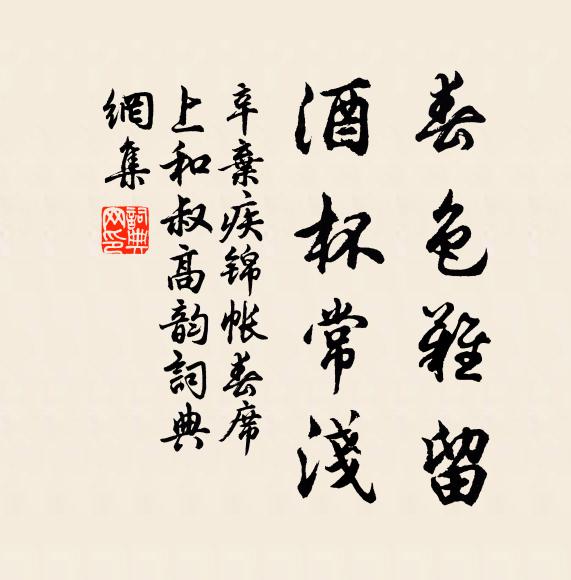 春色難留
酒杯常淺
辛棄疾锦帐春席
上和叔高韵詞典
網集
詞典网印